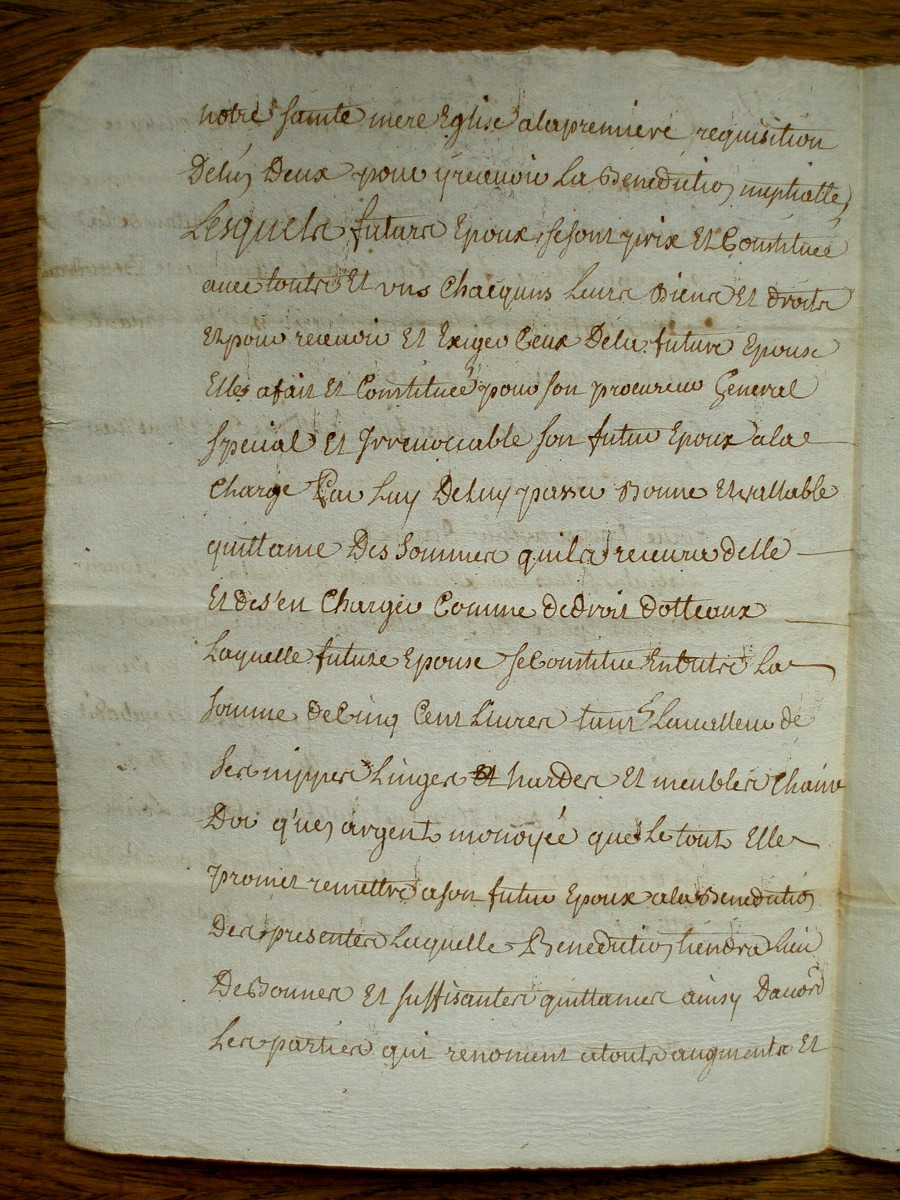 notre sainte mere Eglise alapremiere requisition
Delun Deux pour yrecevoir La Benediction nuptialle
Lesquels futurs Epoux se sont prix Et Constitués
avec touts Et uns Chacquns Leurs Biens Et droits
Et pour recevoir Et Exiger Ceux Dela future Epouse
Elle a fait Et Constitué pour son procureur General
special Et Irrevoccable son futur Epoux ala
Charge Par Luy Deluy passer Bonne Et vallable
quittance Des Sommes quil recevra delle
Et des'en Charger Comme dedroit dotteaux
Laquelle future Epouse se Constitue En outre La
somme de Cinq Cent Livres tant Lavalleur de
ses nippes Linges Et hardes Et meubles Chaine
Dor qu'en argent monoyée que Le tout Elle
promet remettre ason futur Epoux ala Benediction
Des presentes Laquelle Benediction tiendra lieu
De Bonnes Et suffisantes quittances ainsy Daccord
Les parties qui renoncent atouts augments Et